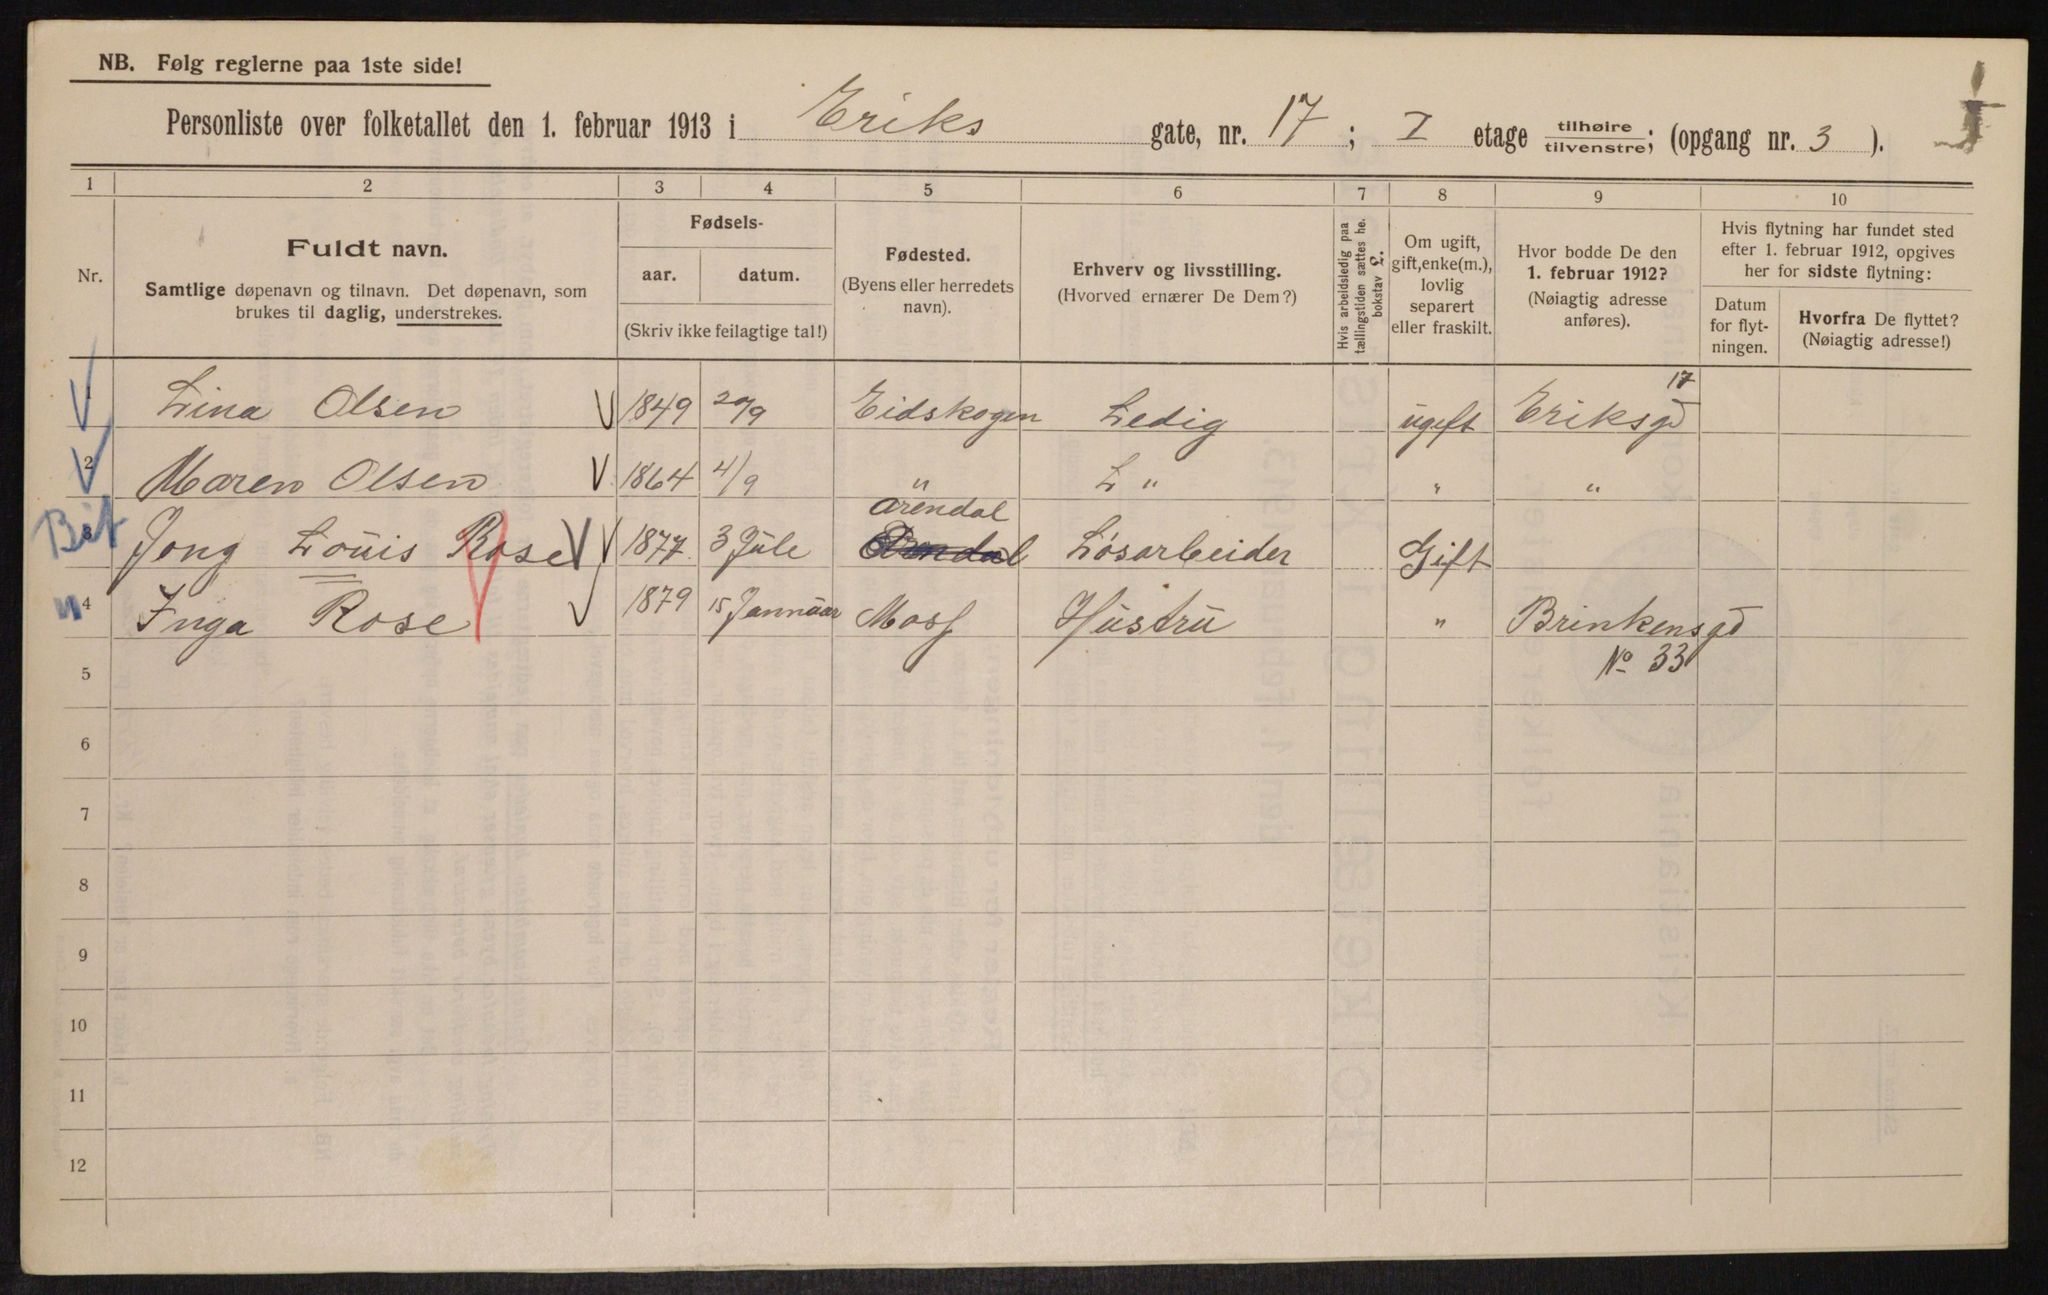 NB. Følg reglerne paa 1ste side!
Personliste over folketallet den 1. februar 1913 i Eriks gate, nr. 17 ; I etage tilhøire / tilvenstre; (opgang nr. 3 ).
1 2 3 4 5 6 7 8 9 10
Nr.
Fuldt navn.
Samtlige døpenavn og tilnavn. Det døpenavn, som
brukes til daglig, understrekes.
Fødsels-
aar. datum.
(Skriv ikke feilagtige tal!)
Fødested.
(Byens eller herredets
navn).
Erhverv og livsstilling.
(Hvorved ernærer De Dem?)
Hvis arbeidsledig paa
tællingstiden sættes he.
bokstav L.
Om ugift,
gift, enke(m.),
lovlig
separert
eller fraskilt.
Hvor bodde De den
1. februar 1912?
(Nøiagtig adresse
anføres).
Hvis flytning har fundet sted
efter 1. februar 1912, opgives
her for sidste flytning:
Datum
for flyt-
ningen.
Hvorfra De flyttet?
(Nøiagtig adresse!)
1 Lina Olsen 1849 20/9 Eidskogen Ledig ugift Eriksgd 17
2 Maren Olsen 1864 4/9 " L " " "
Arendal
3 Jong Louis Rose 1877 3 Jule Løsarbeider Gift
4 Inga Rose 1879 15 Jannuar Moss Hustru " Brinkensgd
5 No 33
6
7
8
9
10
11
12